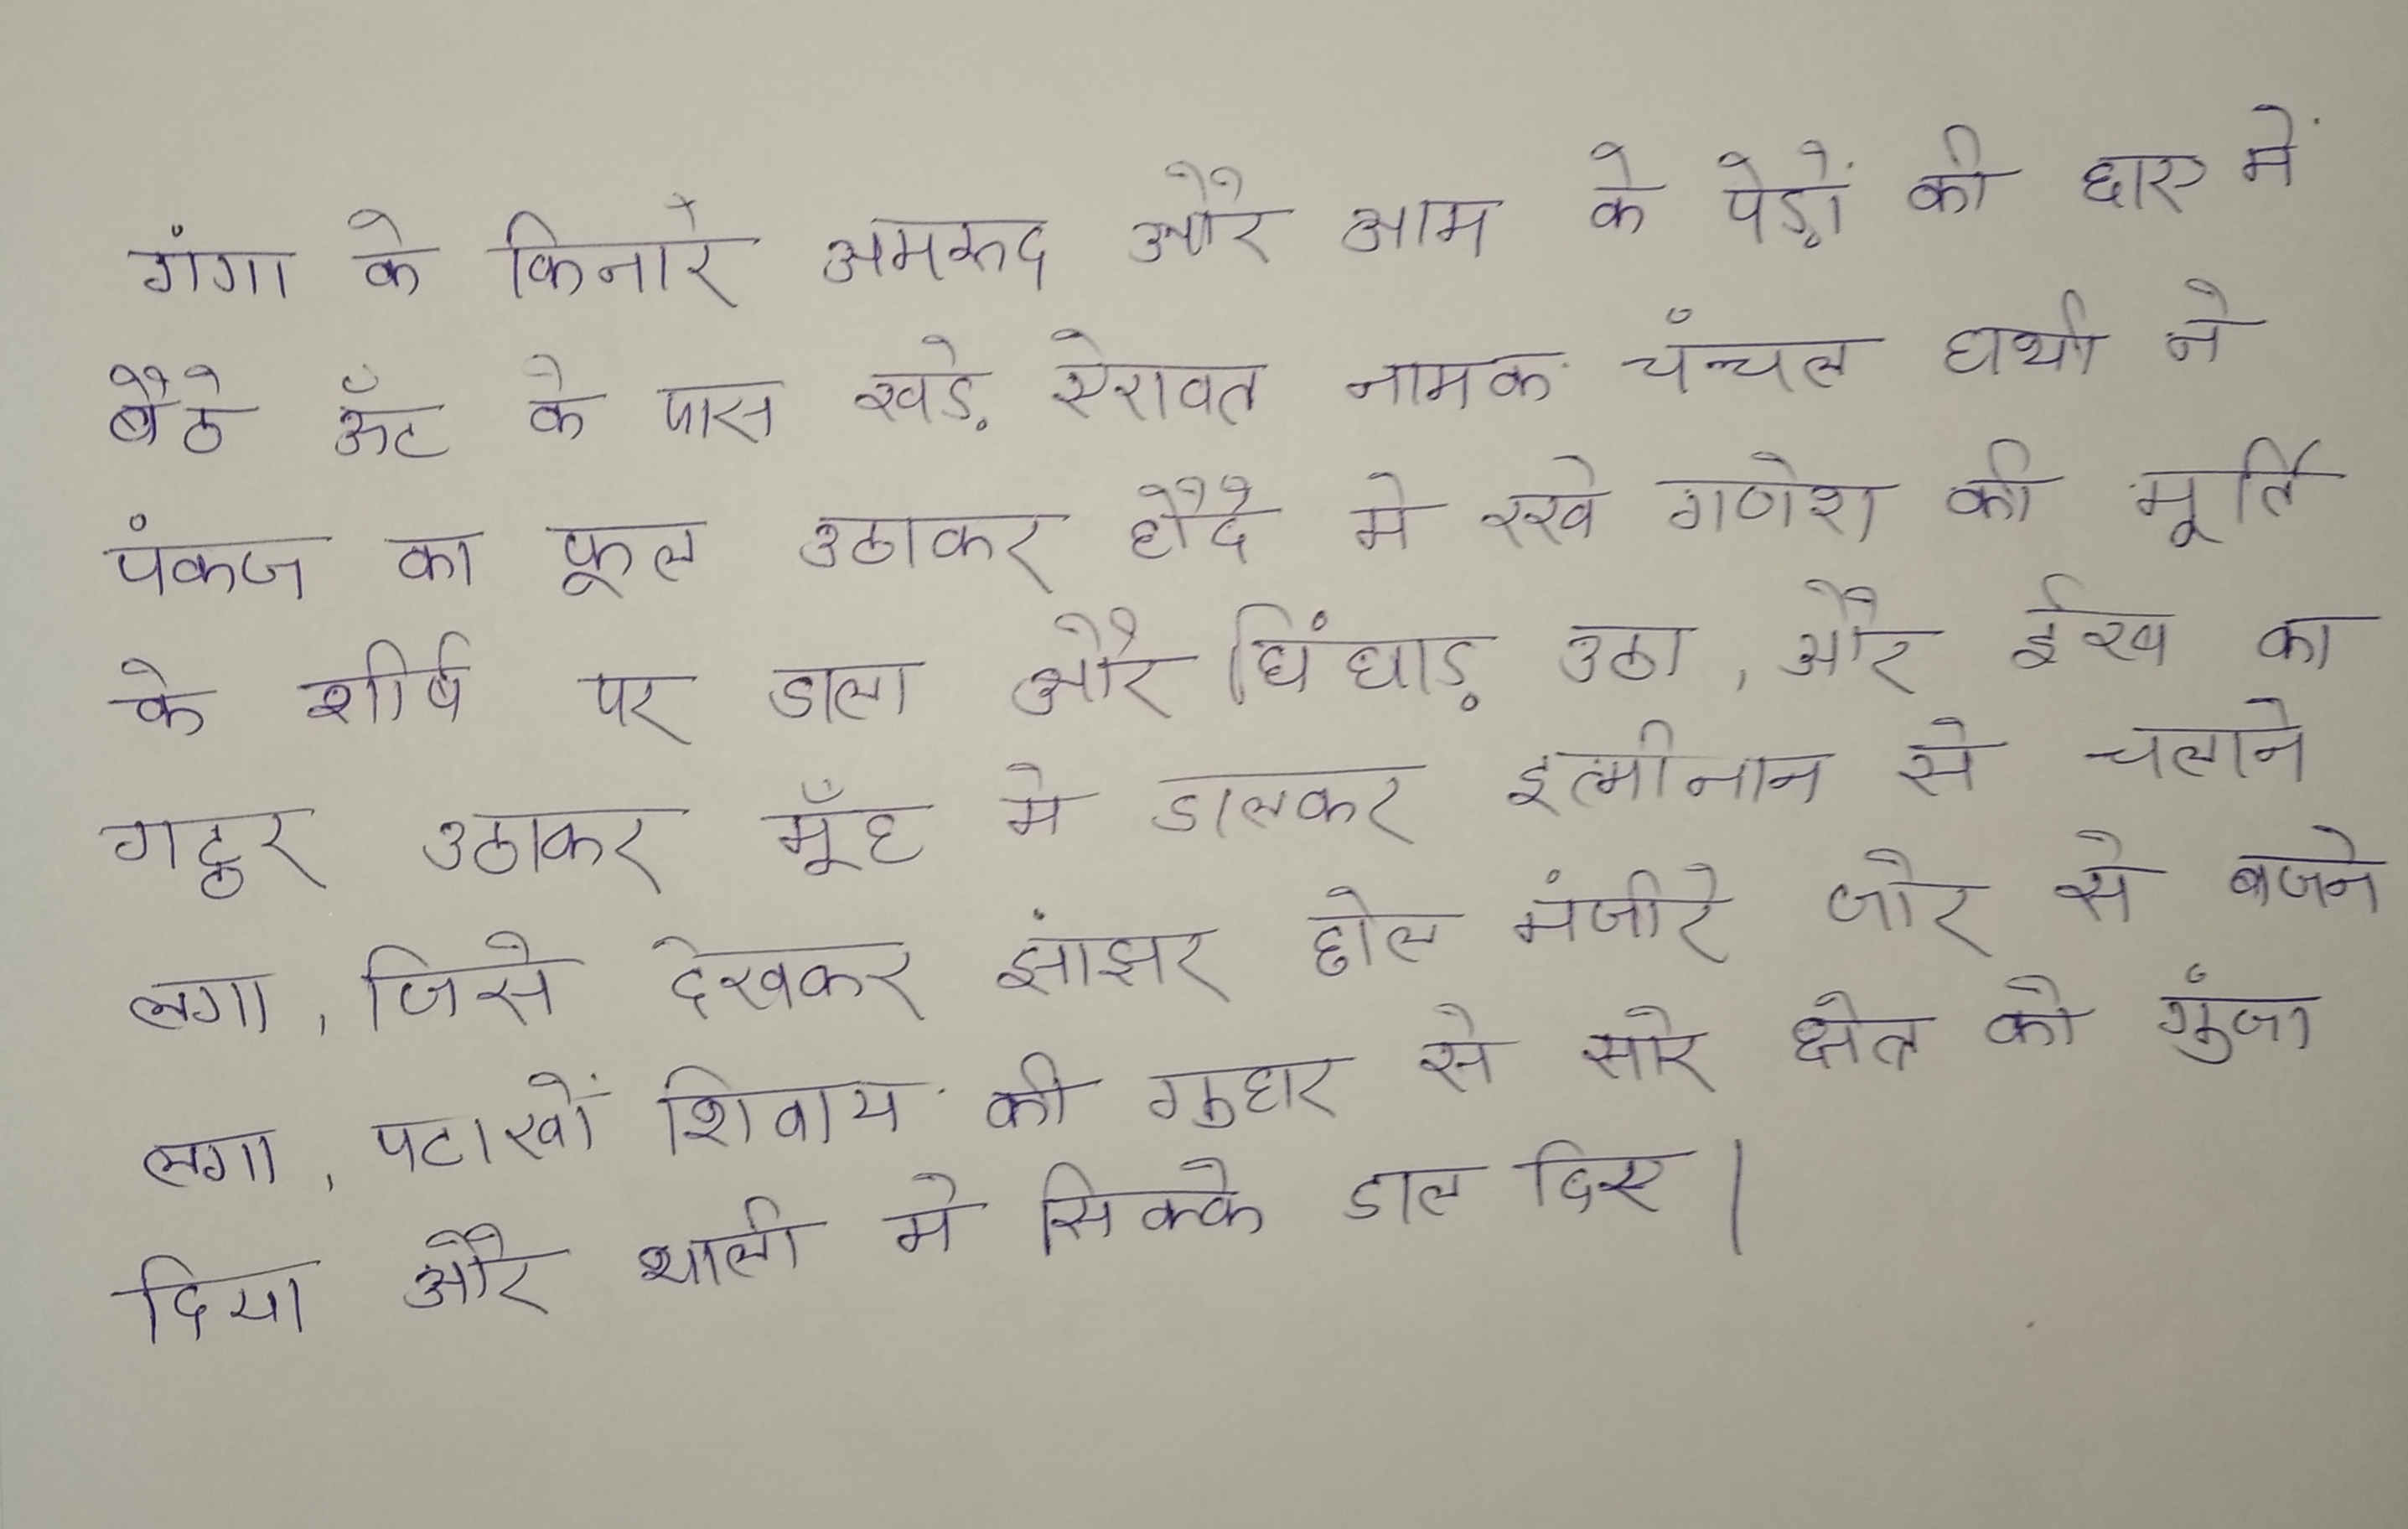 गंगा के किनारे अमरूद और आम के पेड़ों की छाए में
बैठे ऊँट के पास खड़े ऐरावत नामक चंन्चल हाथी ने
पंकज का फूल उठाकर हौदे मे रखे गणेश की मूर्ति
के शीर्ष पर डाला और घिंघाड़ उठा, और ईख का
गट्ठर उठाकर मूँह मे डालकर इत्मीनान से चलाने
लगा, जिसे देखकर झांझर ढोल मंजीरे जोर से बजने
लगा, पटाखों शिवाय की गुहार से सारे क्षेत्र को गुंजा
दिया और थाली मे सिक्के डाल दिए।